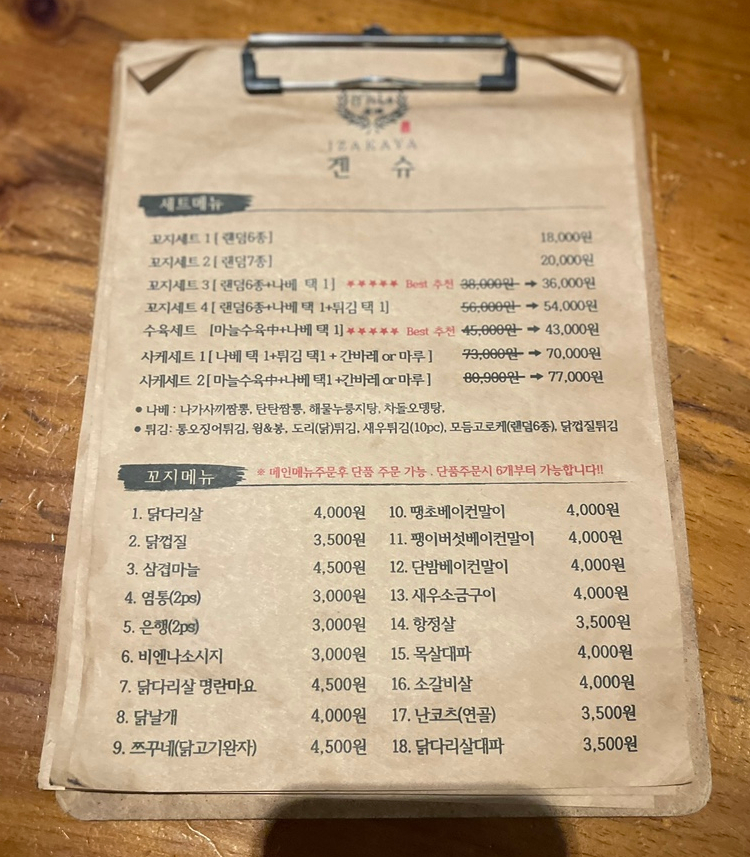 IZAKAYA
겐 슈
세트메뉴
꼬지세트 1 [ 랜덤6종] 18,000원
꼬지세트 2 [ 랜덤7종] 20,000원
꼬지세트 3 [ 랜덤6종+나베 택 1] ★★★★★ Best 추천 38,000원 ➡ 36,000원
꼬지세트 4 [ 랜덤6종+나베 택 1+튀김 택 1] 56,000원 ➡ 54,000원
수육세트 [마늘수육中+나베 택 1] ★★★★★ Best 추천 45,000원 ➡ 43,000원
사케세트 1 [ 나베 택 1+튀김 택1 + 간바레 or 마루 ] 73,000원 ➡ 70,000원
사케세트 2 [ 마늘수육中+나베 택1 +간바레 or 마루 ] 80,900원 ➡ 77,000원
● 나베 : 나가사끼짬뽕, 탄탄짬뽕, 해물누룽지탕, 차돌오뎅탕,
● 튀김: 통오징어튀김, 윙&봉, 도리(닭)튀김, 새우튀김(10pc), 모듬고로케(랜덤6종), 닭껍질튀김
꼬지메뉴 ※ 메인메뉴주문후 단품 주문 가능 . 단품주문시 6개부터 가능합니다!!
1. 닭다리살 4,000원 10. 땡초베이컨말이 4,000원
2. 닭껍질 3,500원 11. 팽이버섯베이컨말이 4,000원
3. 삼겹마늘 4,500원 12. 단밤베이컨말이 4,000원
4. 염통(2ps) 3,000원 13. 새우소금구이 4,000원
5. 은행(2ps) 3,000원 14. 항정살 3,500원
6. 비엔나소시지 3,000원 15. 목살대파 4,000원
7. 닭다리살 명란마요 4,500원 16. 소갈비살 4,000원
8. 닭날개 4,000원 17. 난코츠(연골) 3,500원
9. 쯔꾸네(닭고기완자) 4,500원 18. 닭다리살대파 3,500원